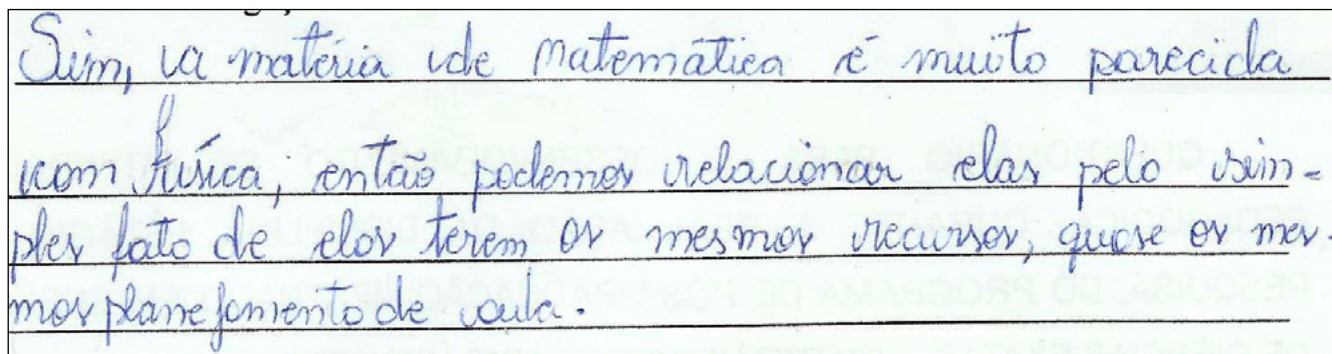 Sim, a matéria de matemática é muito parecida
com física, então podemos relacionar elas pelo sim-
ples fato de elas terem os mesmos recursos, quase os mes-
mos planejamento de aula.